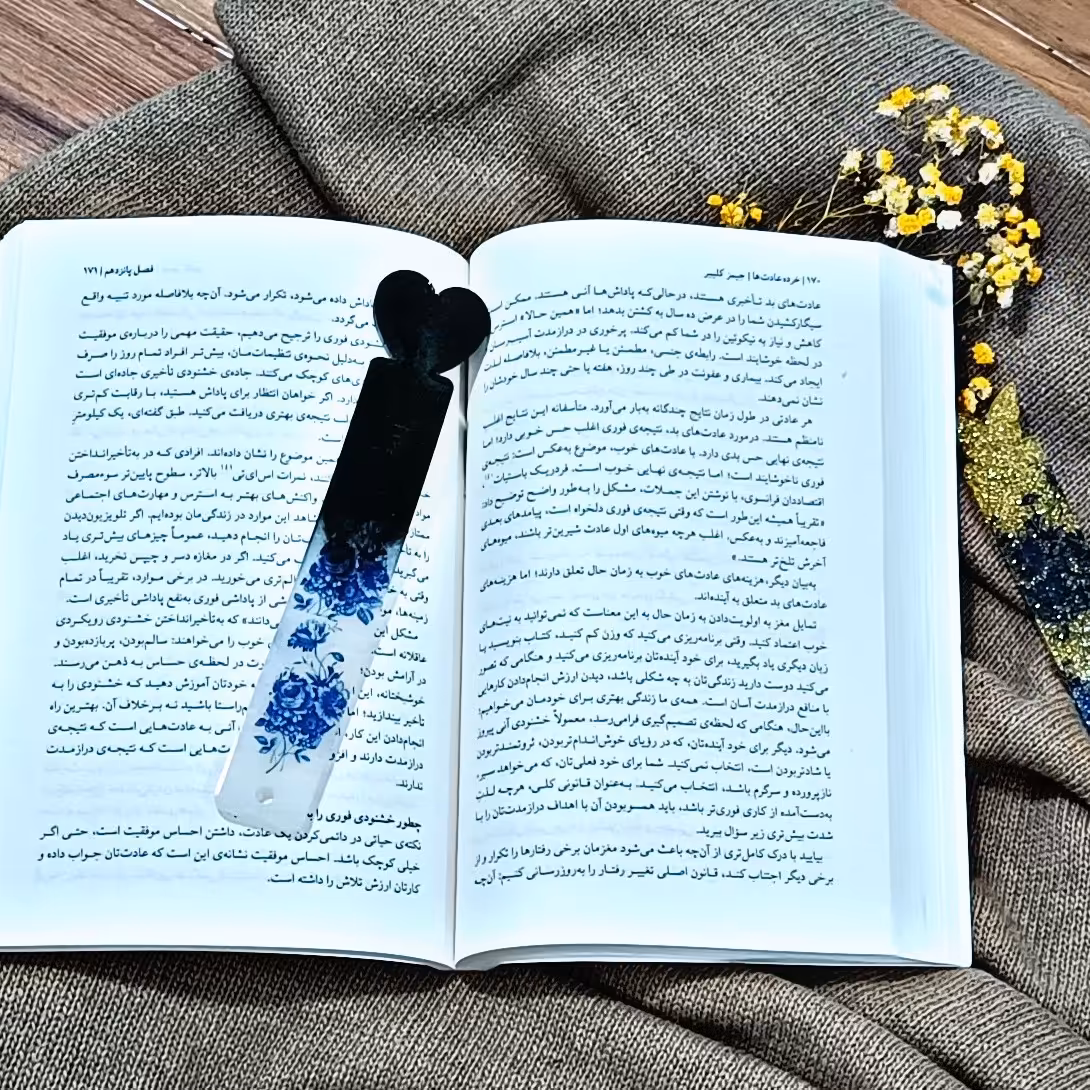 ۱۷۰ | خرده‌عادت‌ها | جیمز کلییر
عادت‌های بد تأخیری هستند، درحالی‌که پاداش‌ها آنی هستند. ممکن
سیگارکشیدن شما را در عرض ده سال به کشتن بدهد؛ اما «همین حالا» استرس
کاهش و نیاز به نیکوتین را در شما کم می‌کند. پرخوری در درازمدت آسیب‌رسان
در لحظه خوشایند است. رابطه‌ی جنسی، مطمئن یا غیرمطمئن، بلافاصله لذت
ایجاد می‌کند. بیماری و عفونت در طی چند روز، هفته یا حتی چند سال خودشان را
نشان نمی‌دهند.
هر عادتی در طول زمان نتایج چندگانه به‌بار می‌آورد. متأسفانه این نتایج اغلب
نامنظم هستند. درمورد عادت‌های بد، نتیجه‌ی فوری اغلب حس خوبی دارد؛ اما
نتیجه‌ی نهایی حس بدی دارد. با عادت‌های خوب، موضوع به‌عکس است: نتیجه‌ی
فوری ناخوشایند است؛ اما نتیجه‌ی نهایی خوب است. فردریک باستیات
اقتصاددان فرانسوی، با نوشتن این جملات، مشکل را به‌طور واضح توضیح داد:
«تقریباً همیشه این‌طور است که وقتی نتیجه‌ی فوری دلخواه است، پیامدهای بعدی
فاجعه‌آمیزند و به‌عکس. اغلب هرچه میوه‌های اول عادت شیرین‌تر باشند، میوه‌های
آخرش تلخ‌تر هستند.»
به‌بیان دیگر، هزینه‌های عادت‌های خوب به زمان حال تعلق دارند؛ اما هزینه‌های
عادت‌های بد متعلق به آینده‌اند.
تمایل مغز به اولویت‌دادن به زمان حال به این معناست که نمی‌توانید به نیت‌های
خوب اعتماد کنید. وقتی برنامه‌ریزی می‌کنید که وزن کم کنید، کتاب بنویسید یا
زبان دیگری یاد بگیرید، برای خود آینده‌تان برنامه‌ریزی می‌کنید و هنگامی که تصور
می‌کنید دوست دارید زندگی‌تان به چه شکلی باشد، دیدن ارزش انجام‌دادن کارهایی
با منافع درازمدت آسان است. همه‌ی ما زندگی بهتری برای خودمان می‌خواهیم؛
بااین‌حال، هنگامی که لحظه‌ی تصمیم‌گیری فرامی‌رسد، معمولاً خشنودی آنی پیروز
می‌شود. دیگر برای خود آینده‌تان، که در رؤیای خوش‌اندام‌تربودن، ثروتمندتربودن
یا شادتربودن است، انتخاب نمی‌کنید. شما برای خود فعلی‌تان، که می‌خواهد سیر،
نازپرورده و سرگرم باشد، انتخاب می‌کنید. به‌عنوان قانونی کلی، هرچه لذت
به‌دست‌آمده از کاری فوری‌تر باشد، باید همسوبودن آن با اهداف درازمدت‌تان را با
شدت بیش‌تری زیر سؤال ببرید.
بیایید با درک کامل‌تری از آن‌چه باعث می‌شود مغزمان برخی رفتارها را تکرار و از
برخی دیگر اجتناب کند، قانون اصلی تغییر رفتار را به‌روزرسانی کنیم: آن‌چه
فصل پانزدهم | ۱۷۱
پاداش داده می‌شود، تکرار می‌شود. آن‌چه بلافاصله مورد تنبیه واقع
می‌گردد.
فوری را ترجیح می‌دهیم، حقیقت مهمی را درباره‌ی موفقیت
به‌دلیل نحوه‌ی تنظیمات‌مان، بیش‌تر افراد تمام روز را صرف
کوچک می‌کنند. جاده‌ی خشنودی تأخیری جاده‌ای است
اگر خواهان انتظار برای پاداش هستید، با رقابت کم‌تری
نتیجه‌ی بهتری دریافت می‌کنید. طبق گفته‌ای، یک کیلومتر
همین موضوع را نشان داده‌اند. افرادی که در به‌تأخیرانداختن
نمرات اس‌ای‌تی بالاتر، سطوح پایین‌تر سوءمصرف
واکنش‌های بهتر به استرس و مهارت‌های اجتماعی
شاهد این موارد در زندگی‌مان بوده‌ایم. اگر تلویزیون‌دیدن
را انجام دهید، عموماً چیزهای بیش‌تری یاد
می‌کنید. اگر در مغازه دسر و چیپس نخرید، اغلب
می‌خورید. در برخی موارد، تقریباً در تمام
زمینه‌ها، از پاداشی فوری به‌نفع پاداشی تأخیری است.
مشکل این که به‌تأخیرانداختن خشنودی رویکردی
عاقلانه خوب را می‌خواهند: سالم‌بودن، پربازده‌بودن و
در آرامش بودن در لحظه‌ی حساس به ذهن می‌رسند.
خوشبختانه، این خودتان آموزش دهید که خشنودی را به
تأخیر بیندازید؛ اما باشید نه برخلاف آن. بهترین راه
انجام‌دادن این کار، آنی به عادت‌هایی است که نتیجه‌ی
درازمدت دارند و عادت‌هایی است که نتیجه‌ی درازمدت
ندارند.
چطور خشنودی فوری را
نکته‌ی حیاتی در دائمی‌کردن یک عادت، داشتن احساس موفقیت است، حتی اگر
خیلی کوچک باشد. احساس موفقیت نشانه‌ی این است که عادت‌تان جواب داده و
کارتان ارزش تلاش را داشته است.